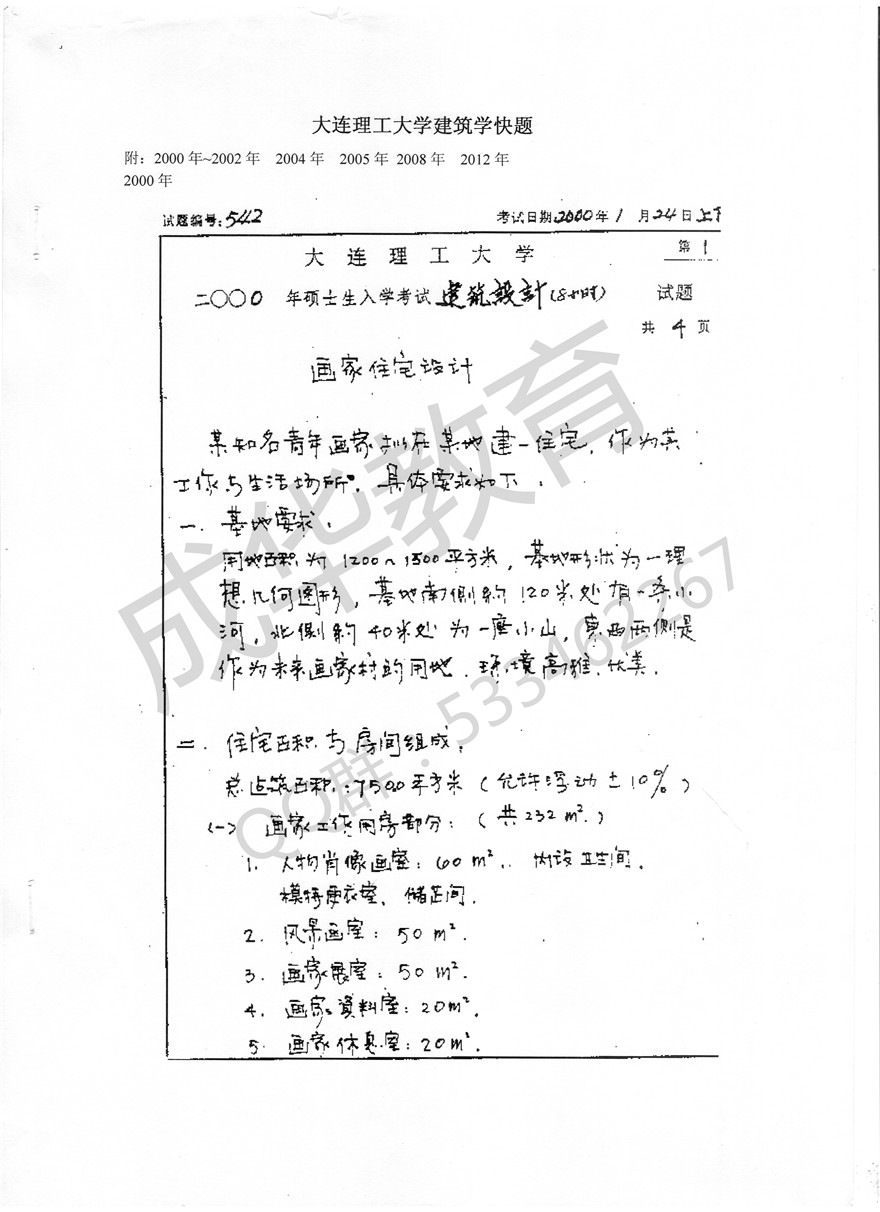 大连理工大学建筑学快题
附：2000年~2002年 2004年 2005年 2008年 2012年
2000年
试题编号：542 考试日期2000年1月24日上下
大连理工大学 第1
二〇〇〇年硕士生入学考试建筑設計(8小时) 试题
共4页
画家住宅设计
某知名青年画家拟在某地建一住宅，作为其
工作与生活场所。具体要求如下：
一、基地要求：
用地面积为1200~1500平方米，基地形状为一理
想几何图形，基地南侧约120米处有一条小
河，北侧约40米处为一座小山，東西两侧是
作为未来画家村的用地．环境高雅、优美．
二．住宅面积与房间组成：
总建筑面积：500平方米（允许浮动±10%）
(一) 画家工作用房部分：(共232m².)
1. 人物肖像画室：60m²．内设卫生间、
模特更衣室、储芷间．
2. 风景画室：50m².
3. 画家展室：50m².
4. 画家資料室：20m².
5. 画家休息室：20m².
成华教育
QQ群：533462267